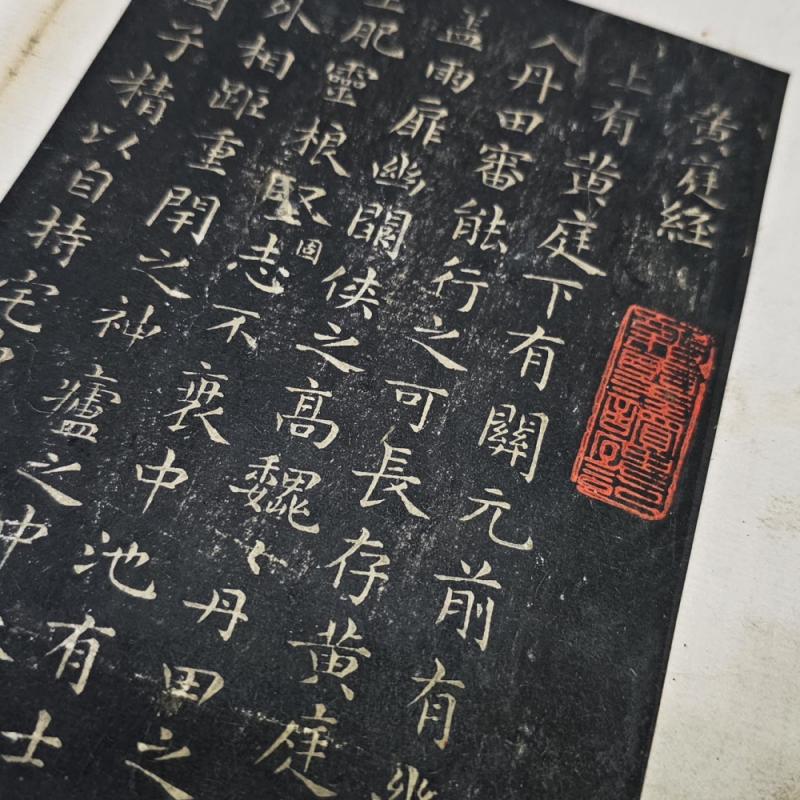 黄庭経
上有黄庭下有關元前有幽
入丹田審能行之可長存黄庭
盖兩扉幽闕侠之高魏〻丹田之
上肥靈根堅固志不衰中池有士
外相距重閇之神廬之中
子精以自持宅